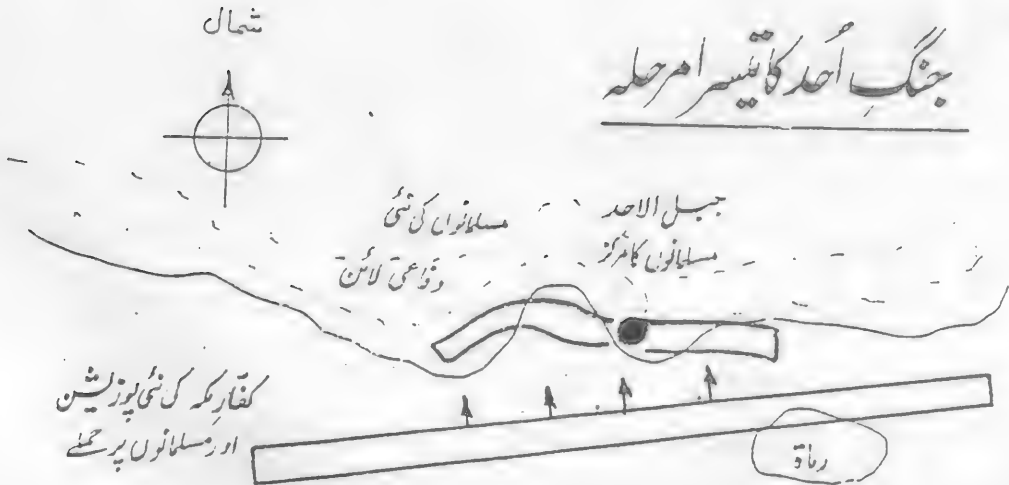 شمال
جنگِ اُحد کا تیسرا مرحلہ
جبل الاحد
مسلمانوں کا مرکز
مسلمانوں کی نئی
دفاعی لائن
کفّارِ مکہ کی نئی پوزیشن
اور مسلمانوں پر حملے
رماة